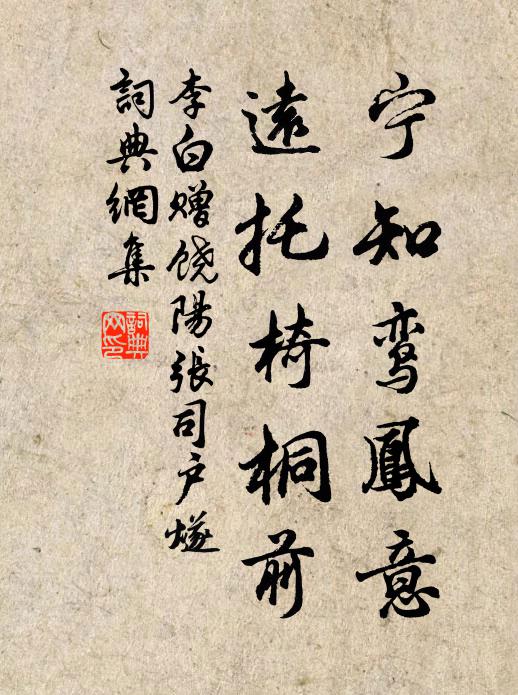 宁知鸾鳳意
遠托椅桐前
李白赠饶陽張司户燧
詞典網集
詞典
网印